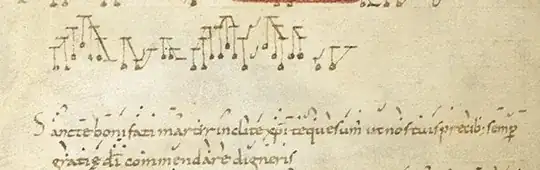 Sancte bonifati martir inclite xpi te quesumꝰ ut nos tuis precib; semp
gratię dī commendare digneris